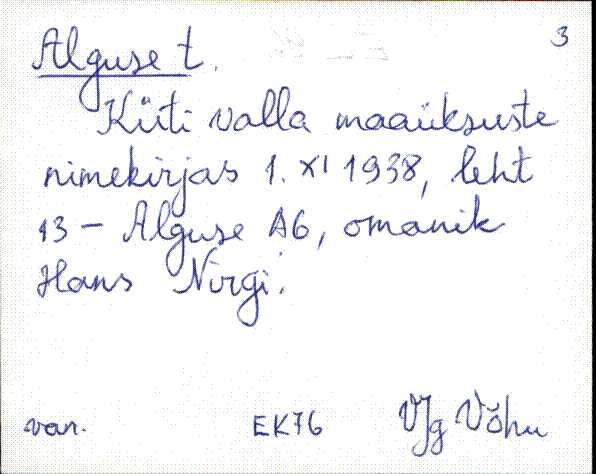 3
Alguse t.
Küti valla maaüksuste
nimekirjas 1. XI 1938, leht
13 - Alguse A6, omanik
Hans Nirgi.
van. EK76 VJg Võhu